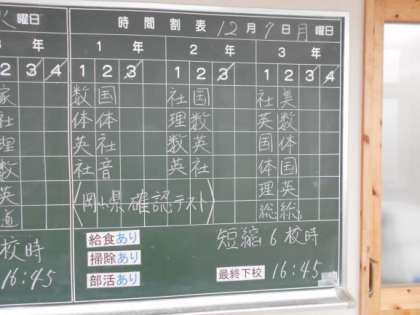 火曜日 時間割表 12月9日月曜日
3年 1年 2年 3年
2 3 4 1 2 3 1 2 3 1 2 3 4
家 数 国 社 国 社 美
社 体 体 理 数 英 数
理 英 社 数 英 国 体
数 社 音 英 社 体 国
英 〈岡山県確認テスト〉 理 英
道 総 総
校時 給食あり 短縮6校時
掃除あり
16:45 部活あり 最終下校 16:45